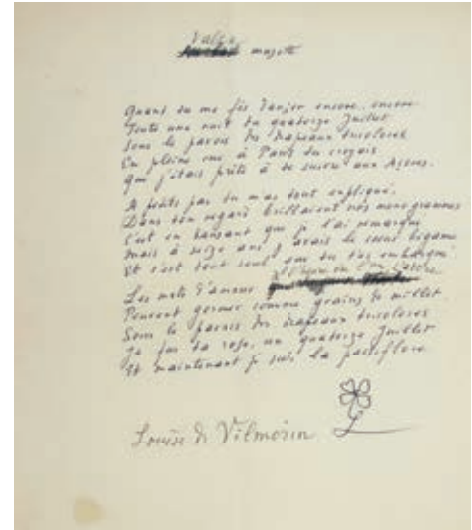 Valse
musette
Quand tu me fis danser encore, encore
Toute une nuit du quatorze Juillet
Sous le pavois des drapeaux tricolores
En pleine rue à Paris tu croyais
Que j'étais prête à te suivre aux Açores.
A petits pas tu m'as tout expliqué,
Dans ton regard brillaient nos monogrammes
C'est en dansant que je l'ai remarqué
Mais à seize ans j'avais le cœur bigame
Et c'est tout seul que tu t'es embarqué.
Les mots d'amour
Peuvent germer comme grains de millet
Sous le pavois des drapeaux tricolores
Je fus ta rose, un quatorze Juillet
Et maintenant je suis la passiflore
Louise de Vilmorin
L